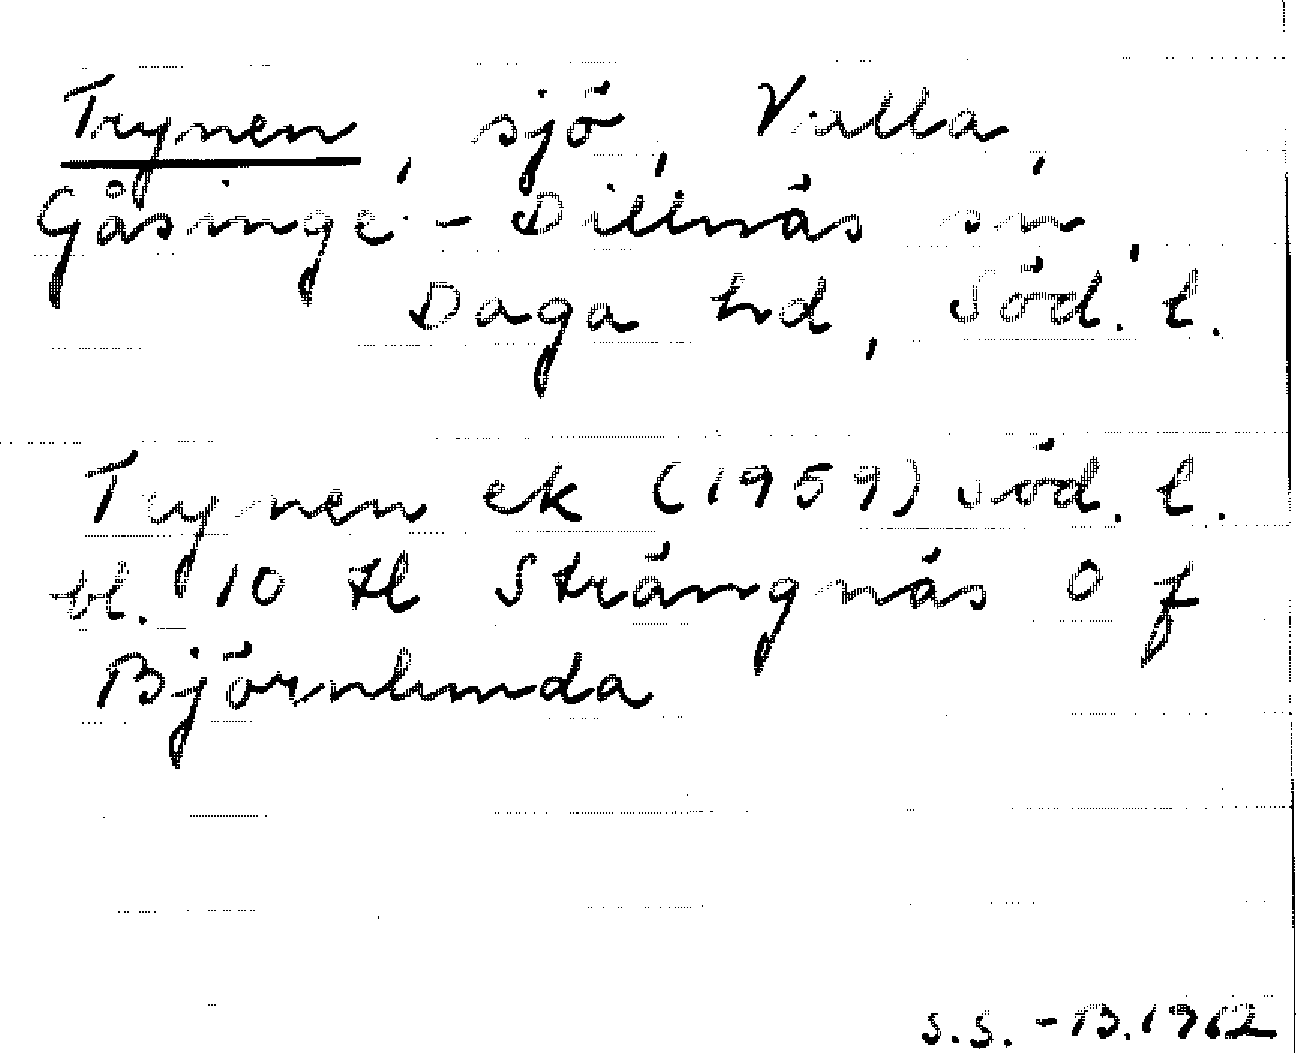 Trynen, sjö, Valla,
Gåsinge-Dillnäs sn,
Daga hd, Söd. l.
Trynen ek (1959) Söd. l.
bl. 10 tl Strängnäs O f
Björnlunda
S.S.-B. 1962